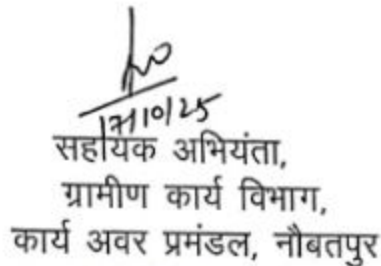 17/10/25
सहायक अभियंता,
ग्रामीण कार्य विभाग,
कार्य अवर प्रमंडल, नौबतपुर